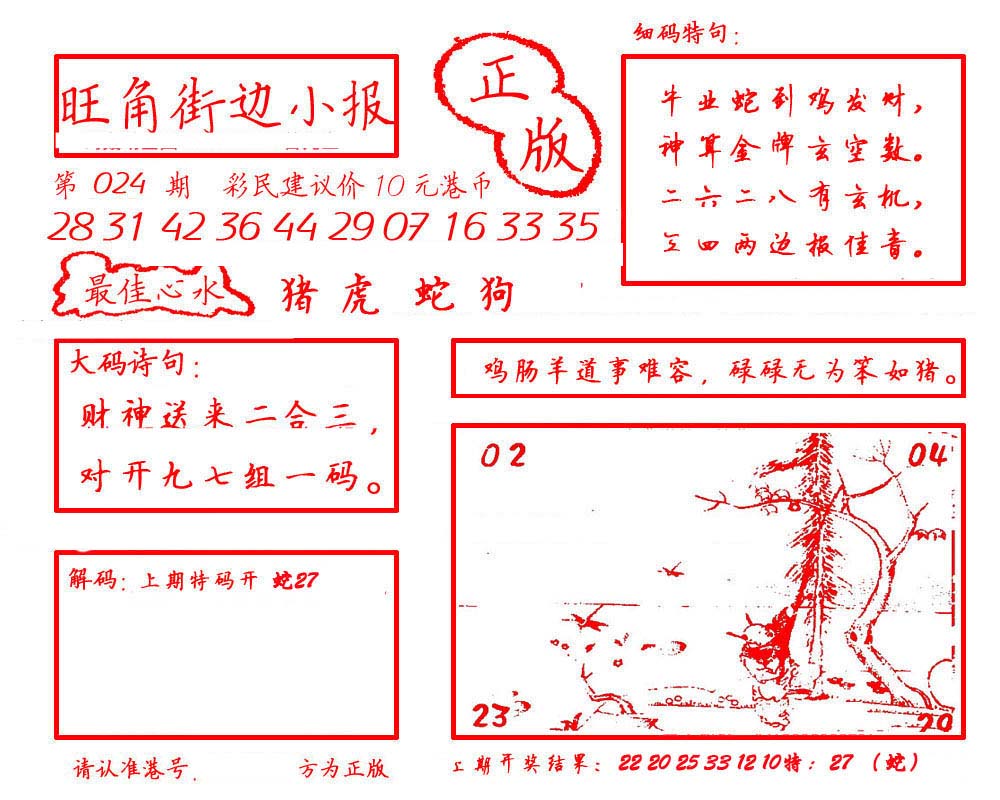 细码特句：
旺角街边小报
正版
牛业蛇到鸡发财，
神算金牌玄空数。
二六二八有玄机，
四两边报佳音。
第 024 期 彩民建议价 10 元港币
28 31 42 36 44 29 07 16 33 35
最佳心水 猪 虎 蛇 狗
大码诗句：
财神送来二合三，
对开九七组一码。
鸡肠羊道事难容，碌碌无为笨如猪。
02 04
23 20
解码：上期特码开 蛇27
请认准港号， 方为正版
上期开奖结果：22 20 25 33 12 10特：27（蛇）